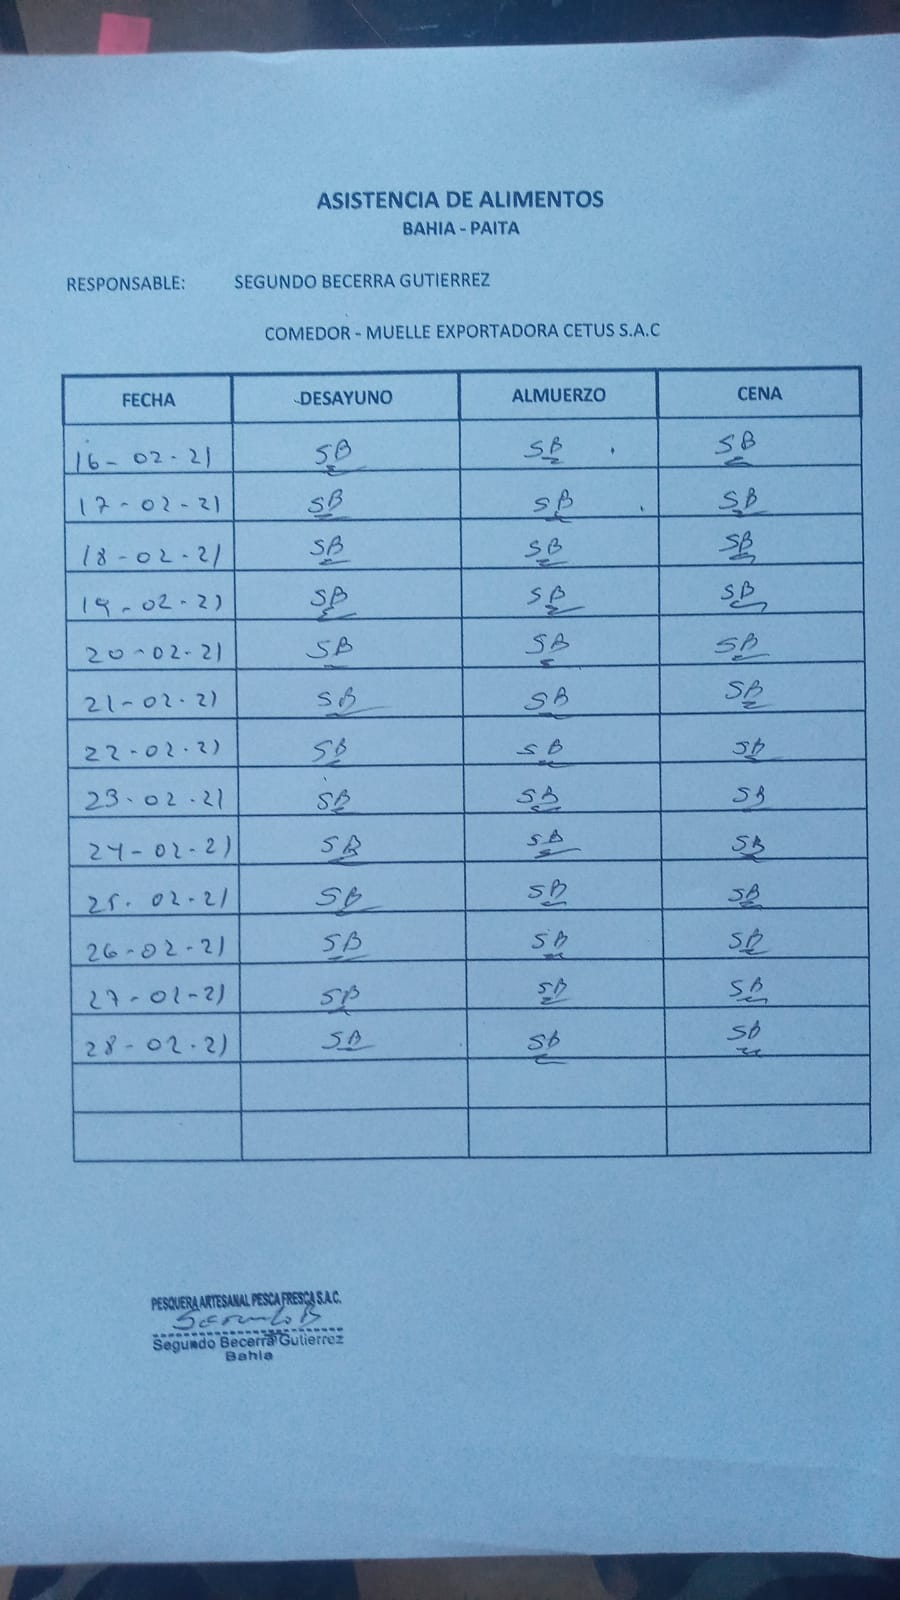 ASISTENCIA DE ALIMENTOS
BAHIA - PAITA
RESPONSABLE: SEGUNDO BECERRA GUTIERREZ
COMEDOR - MUELLE EXPORTADORA CETUS S.A.C
FECHA DESAYUNO ALMUERZO CENA
16-02-21 SB SB SB
17-02-21 SB SB SB
18-02-21 SB SB SB
19-02-21 SB SB SB
20-02-21 SB SB SB
21-02-21 SB SB SB
22-02-21 SB SB SB
23-02-21 SB SB SB
24-02-21 SB SB SB
25-02-21 SB SB SB
26-02-21 SB SB SB
27-02-21 SB SB SB
28-02-21 SB SB SB
PESQUERA ARTESANAL PESCA FRESCA S.A.C.
Segundo B
Segundo Becerra Gutierrez
Bahia